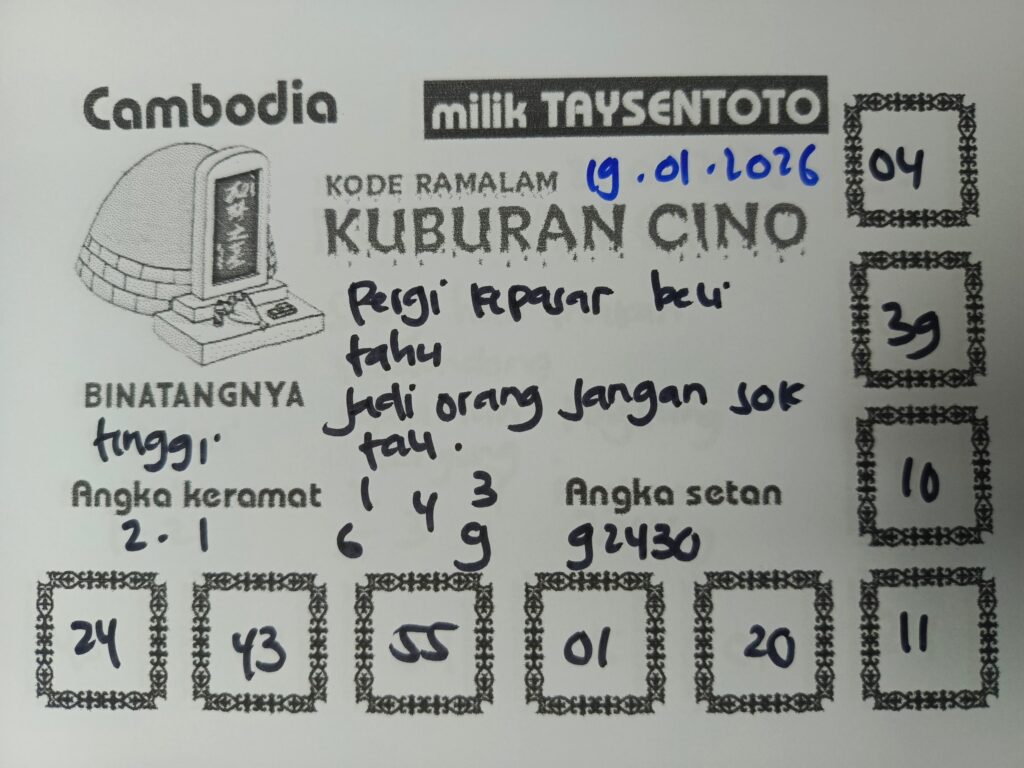 Cambodia
milik TAYSENTOTO
KODE RAMALAM 19.01.2026
KUBURAN CINO
Pergi kepasar beli
tahu
Jadi orang Jangan sok
tau.
BINATANGNYA
tinggi.
Angka keramat
2.1
1 4 3
6 9
Angka setan
92430
04
39
10
24
43
55
01
20
11